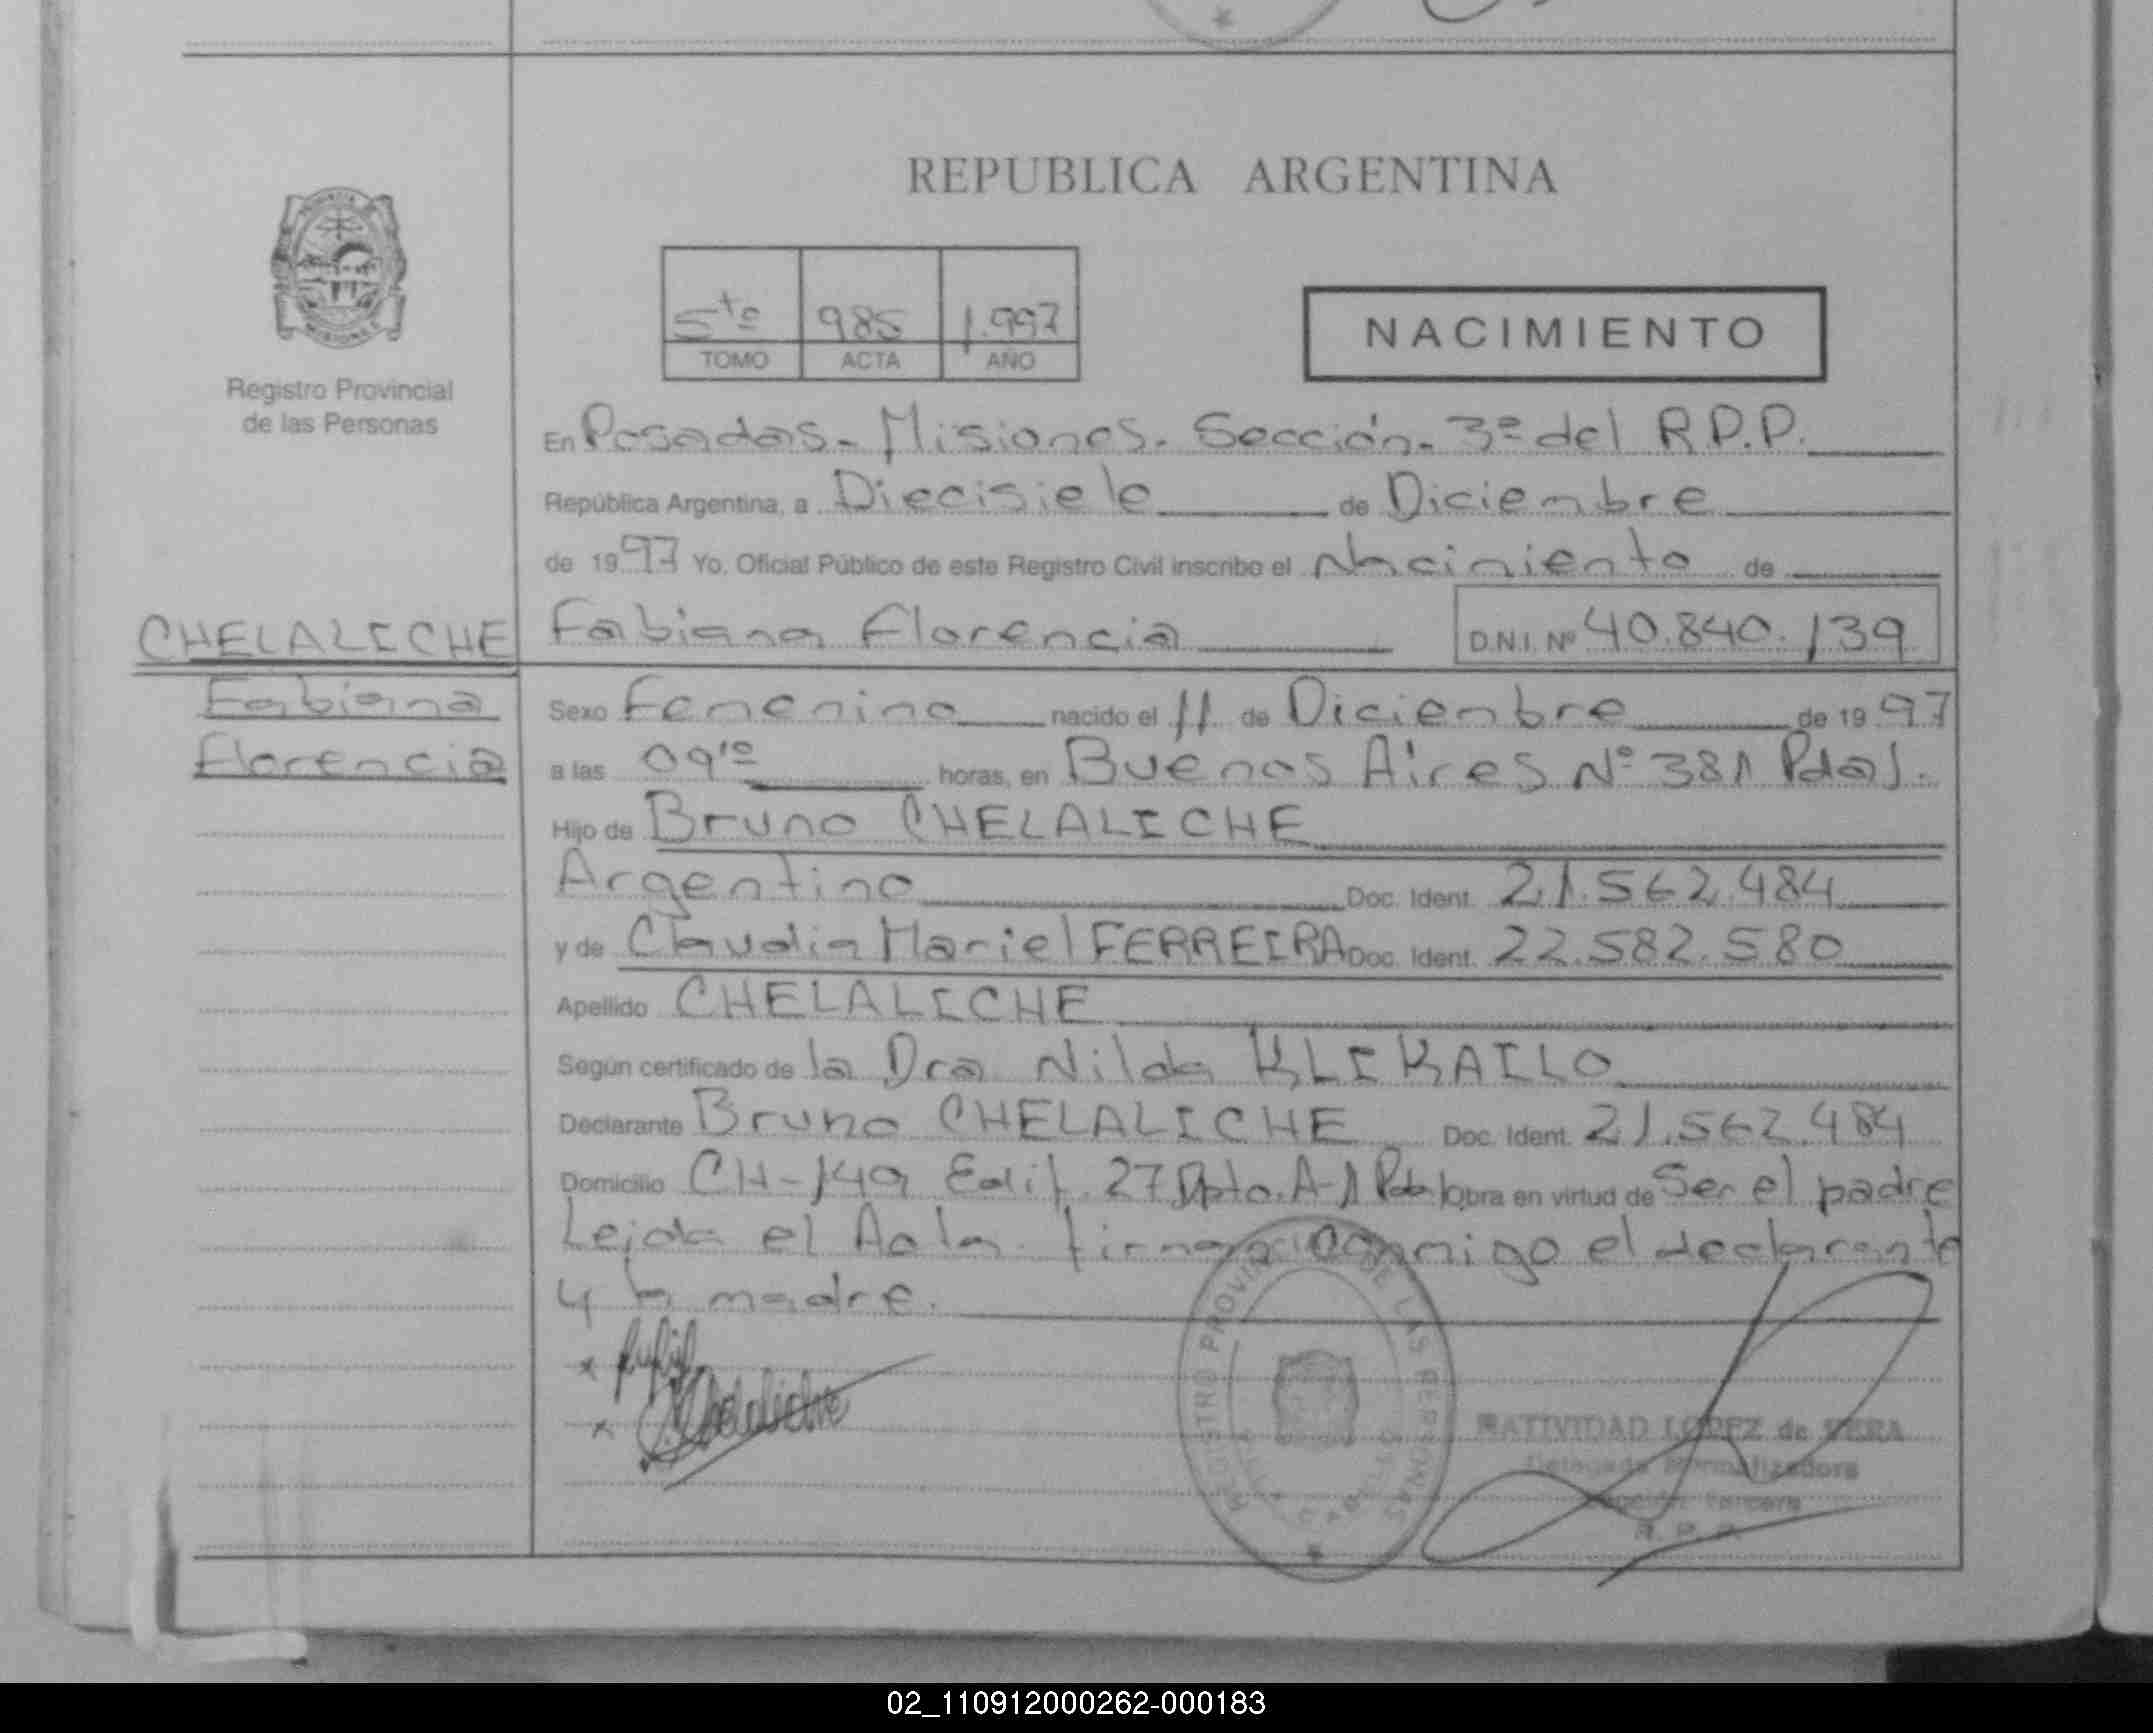 REPUBLICA ARGENTINA
5to 985 1.997
TOMO ACTA AÑO
NACIMIENTO
Registro Provincial
de las Personas
En Posadas - Misiones. Sección - 3ª del R.P.P.
República Argentina, a Diecisiete de Diciembre
de 1997 Yo, Oficial Público de este Registro Civil inscribo el Nacimiento de
CHELALICHE Fabiana Florencia D.N.I. Nº 40.840.139
Fabiana
Florencia
Sexo Femenino nacido el 11 de Diciembre de 1997
a las 09'10 horas, en Buenos Aires Nº 381 Pdas.
Hijo de Bruno CHELALICHE
Argentino Doc. Ident. 21.562.484
y de Claudia Mariel FERREIRA Doc. Ident. 22.582.580
Apellido CHELALICHE
Según certificado de la Dra Nilda KLIKAILO
Declarante Bruno CHELALICHE Doc. Ident. 21.562.484
Domicilio CH-149 Edif. 27 Dpto. A-1 Obra en virtud de Ser el padre
Leida el Acta firman conmigo el declarante
y la madre.
REGISTRO PROVINCIAL DE LAS PERSONAS
NATIVIDAD LOPEZ de VERA
Delegada Normalizadora
Sección Tercera
R. P. P.
02_110912000262-000183